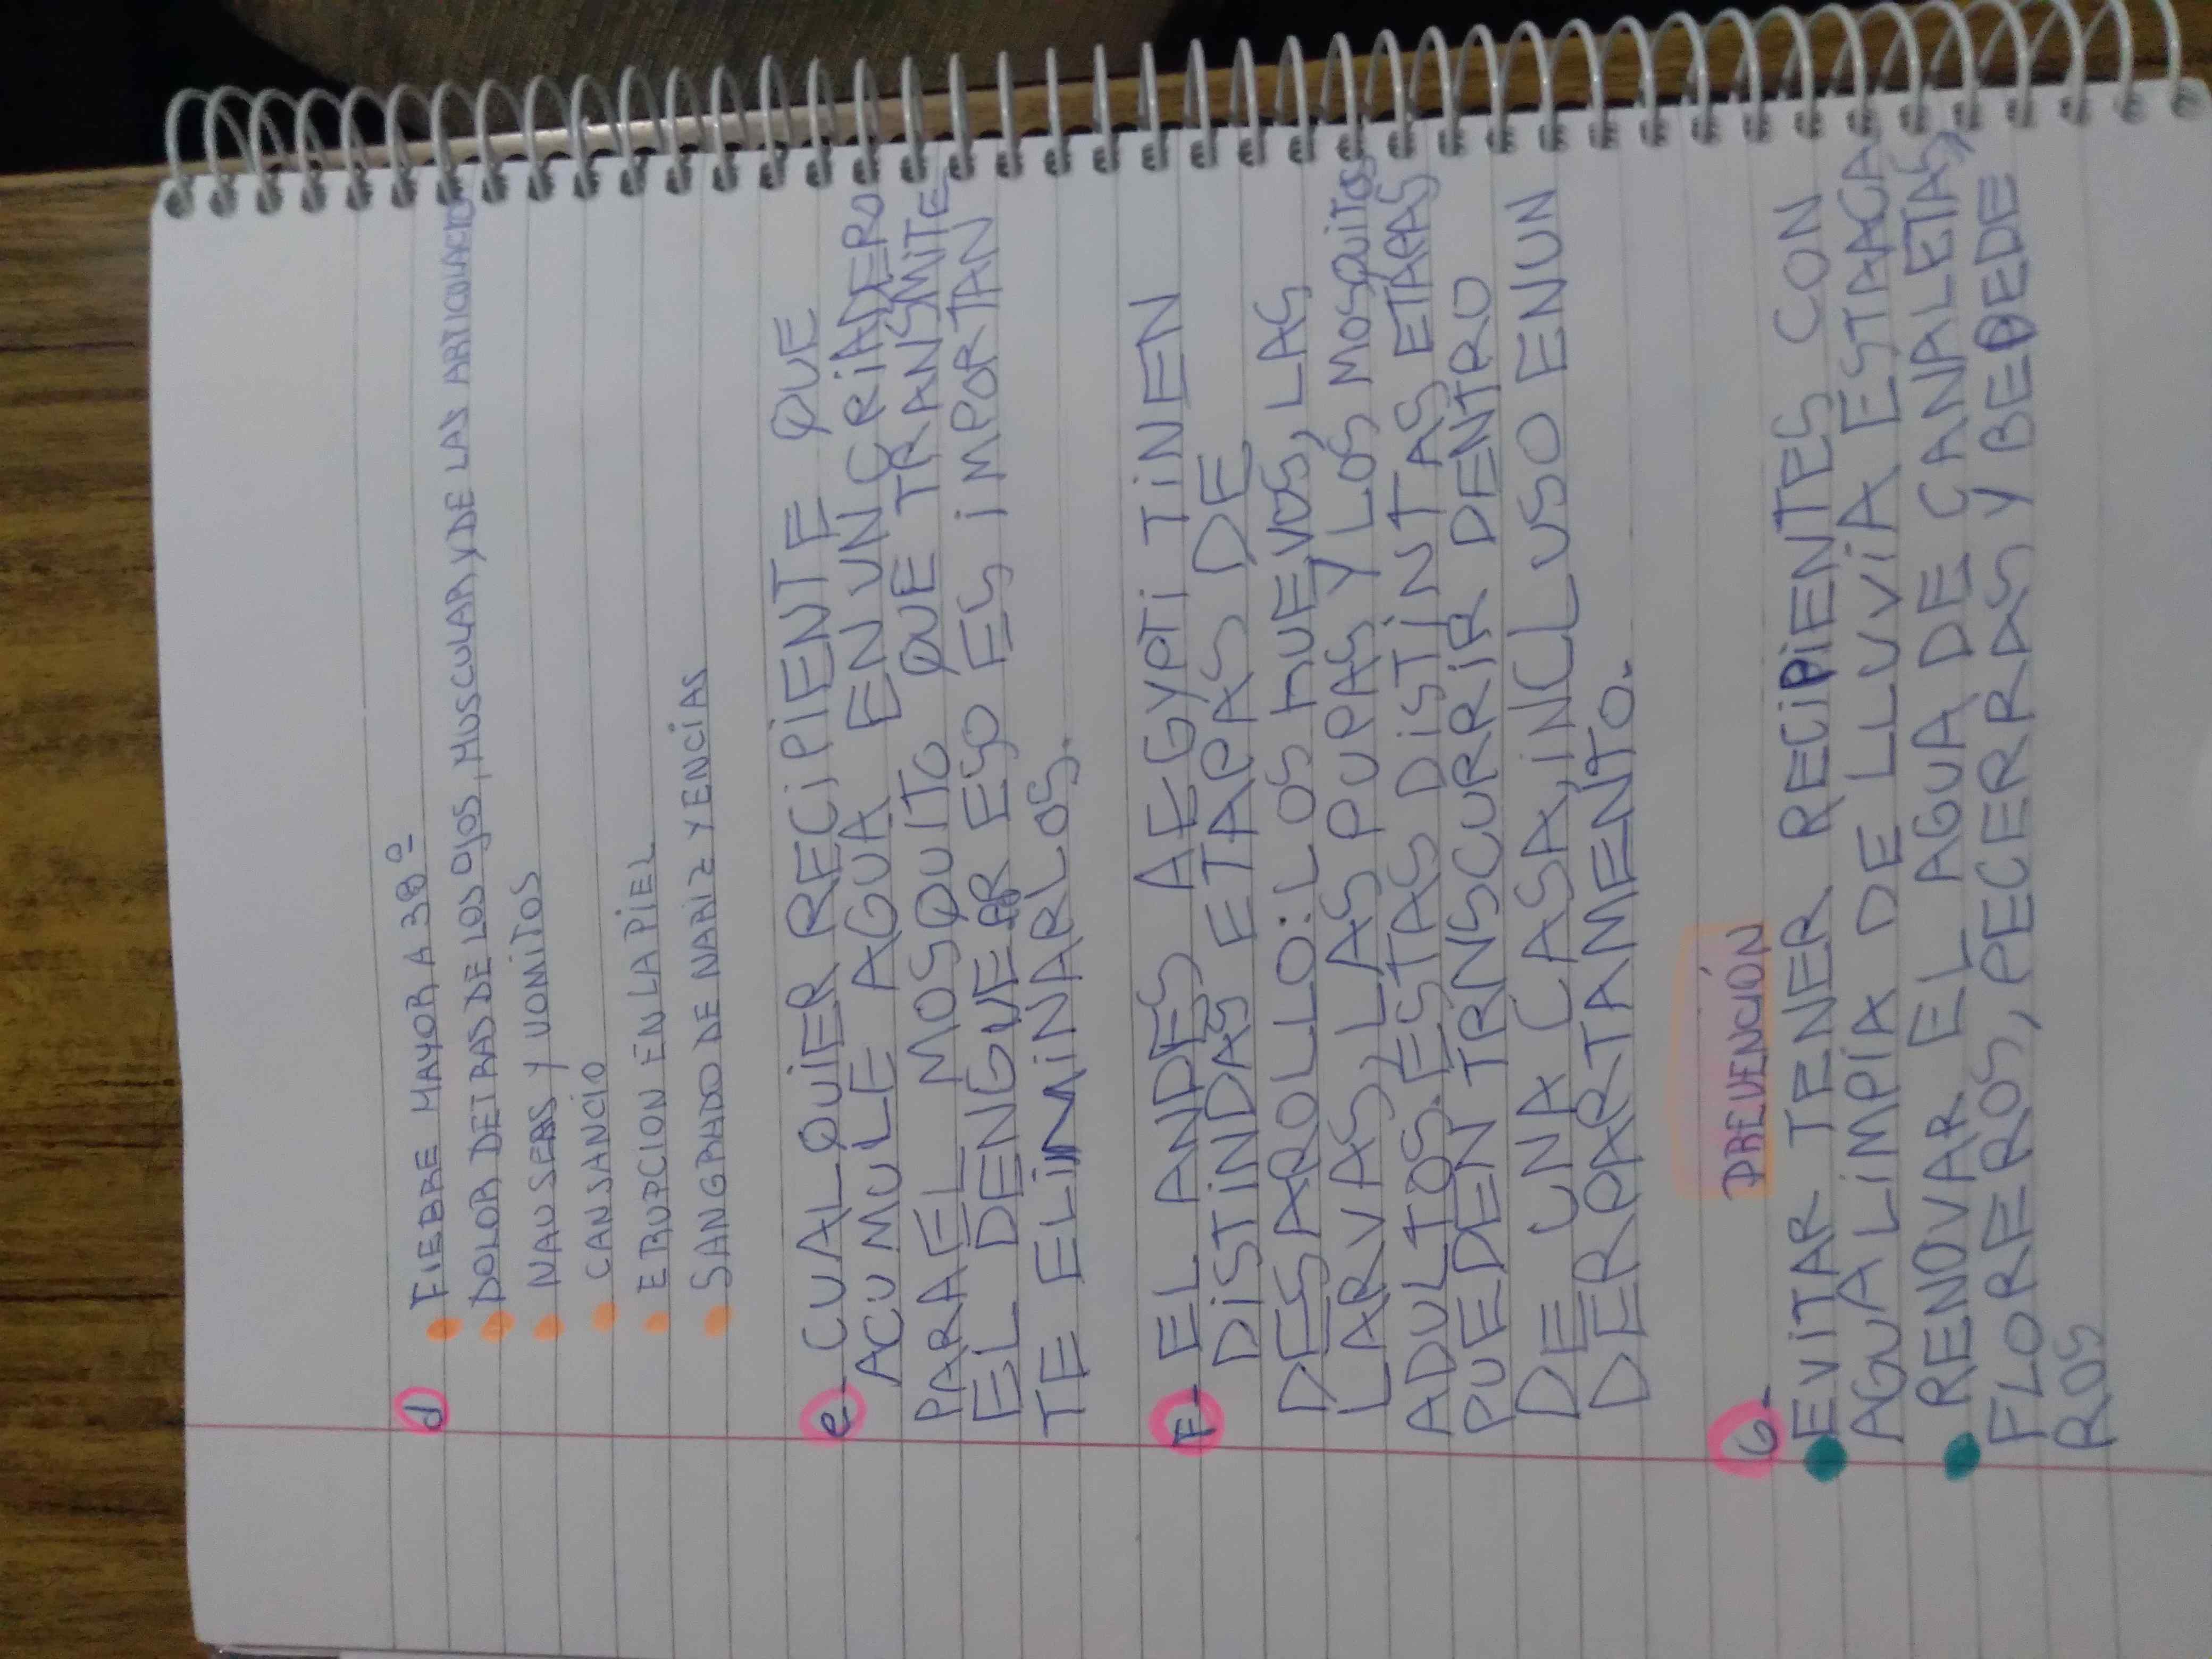 d FIEBRE MAYOR A 38º
DOLOR DETRAS DE LOS OJOS, MUSCULAR Y DE LAS ARTICULACIO
NAUSEAS Y VOMITOS
CANSANCIO
ERUPCION EN LA PIEL
SANGRADO DE NARIZ Y ENCIAS
e- CUALQUIER RECIPIENTE QUE
ACUMULE AGUA EN UN CRIADERO
PARA EL MOSQUITO QUE TRANSMITE
EL DENGUE ESO ES IMPORTAN
TE ELIMINARLOS.
F- EL ANDES AEGYPTI TINEN
DISTINDAS ETAPAS DE
DESAROLLO: LOS HUEVOS, LAS
LARVAS, LAS PUPAS Y LOS MOSQUITOS
ADULTOS. ESTAS DISTINTAS ETAPAS
PUEDEN TRNSCURRIR DENTRO
DE UNA CASA, INCLUSO EN UN
DERPARTAMENTO.
PREVENCIÓN
6- EVITAR TENER RECIPIENTES CON
AGUA LIMPIA DE LLUVIA ESTACA
RENOVAR EL AGUA DE CANALETAS,
FLOREROS, PECERRAS Y BEBEDE
ROS